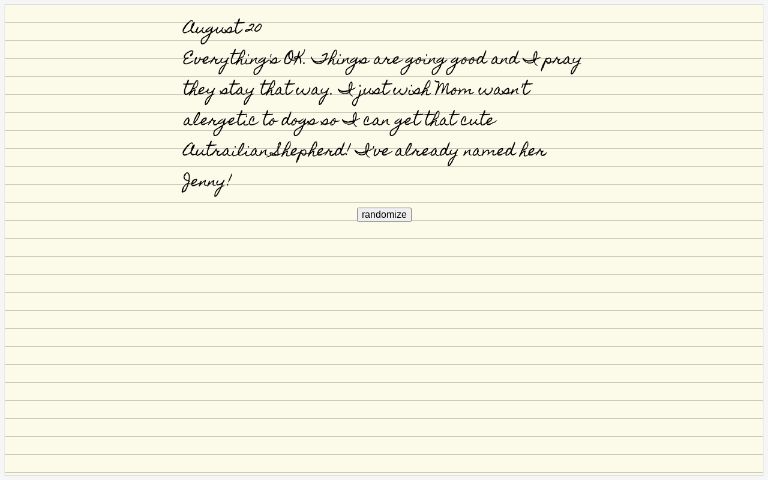 August 20
Everything's OK. Things are going good and I pray
they stay that way. I just wish Mom wasn't
alergetic to dogs so I can get that cute
AutrailianShepherd! I've already named her
Jenny!
randomize